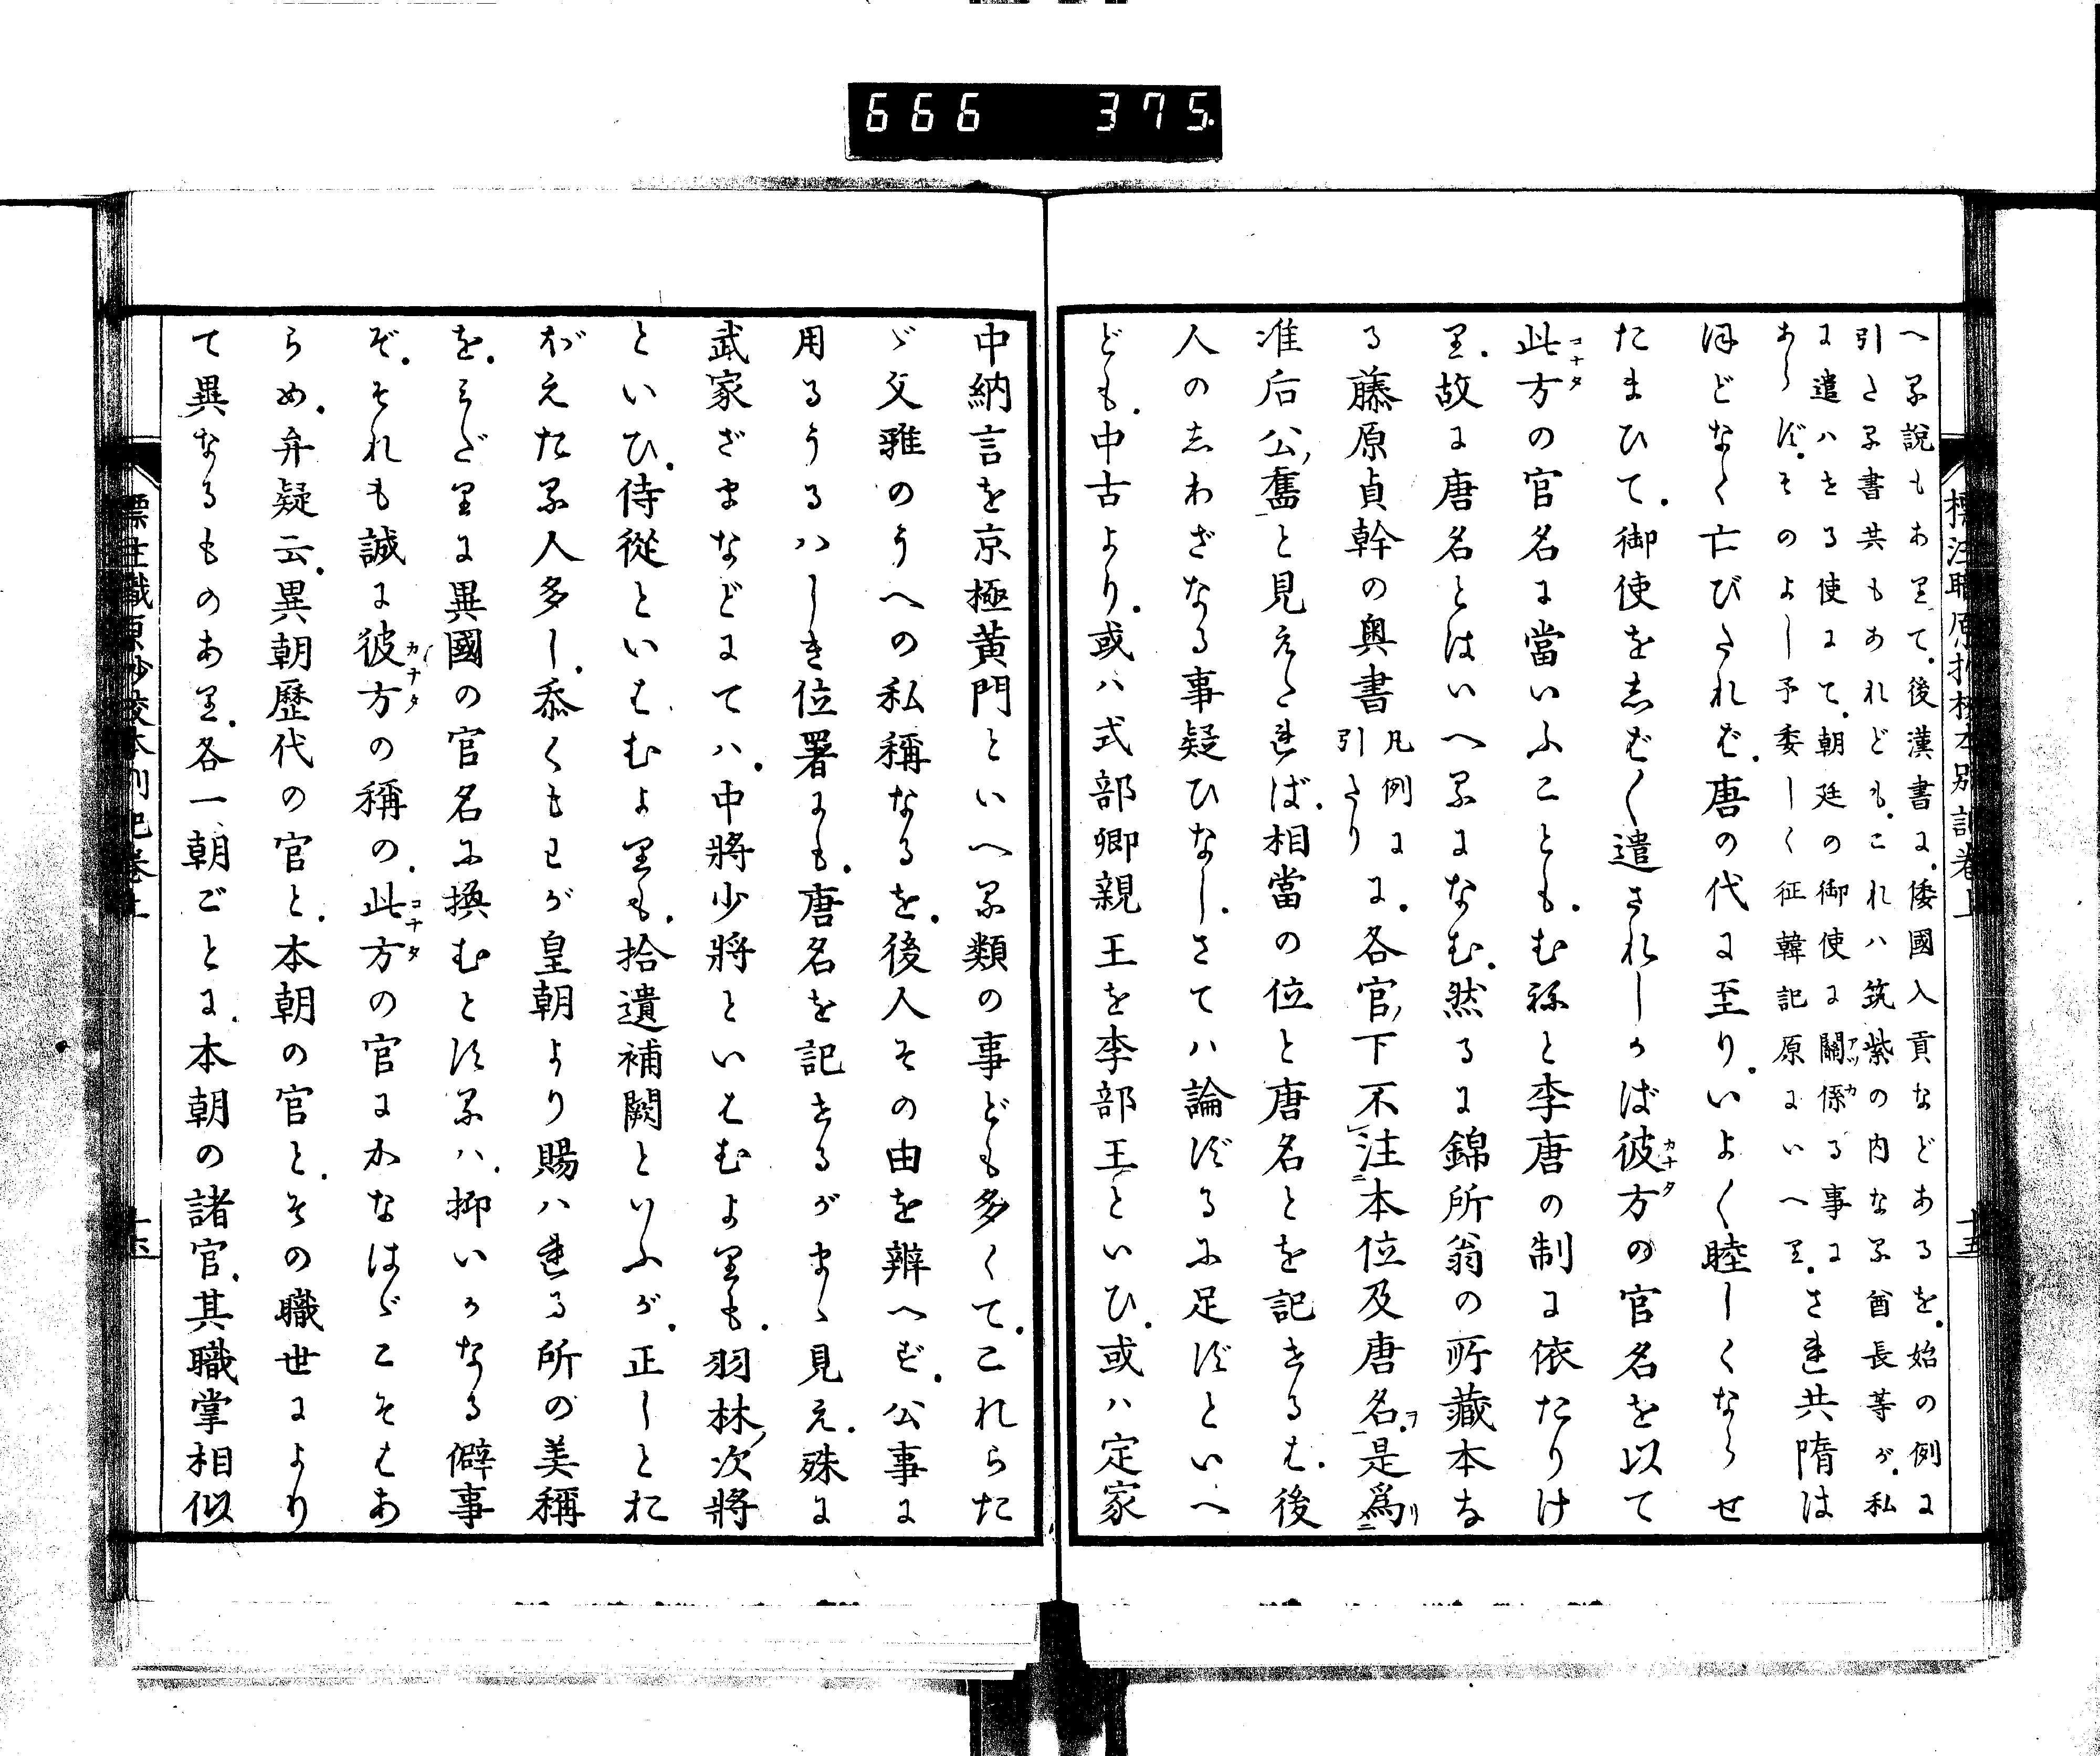 666 375.
標注職原抄校本別記卷上
十五
へる說もありて。後漢書に。倭國入貢などあるを。始の例に
引たる書共もあれども。これハ筑紫の内なる酋長等が。私
に遣ハせる使にて。朝廷の御使に關係る事に
あらず。そのよし予委しく征韓記原にいへり。され共隋は
ほどなく亡びたれば。唐の代に至り。いよ〱睦しくならせ
たまひて。御使をしば〱遣されしかば彼方の官名を以て
此方の官名に當いふことも。むねと李唐の制に依たりけ
り。故に唐名とはいへるになむ。然るに錦所翁の所藏本な
る藤原貞幹の奧書凡例に引たりに。各官下不注本位及唐名。是爲
准后公舊と見えたれば。相當の位と唐名とを記せるは。後
人のしわざなる事疑ひなし。さてハ論ずるに足ずといへ
ども。中古より。或ハ式部卿親王を李部王といひ。或ハ定家
中納言を京極黃門といへる類の事ども多くて。これらた
ゞ文雅のうへの私稱なるを。後人その由を辨へず。公事に
用るうるハしき位署にも。唐名を記せるがまゝ見え。殊に
武家ざまなどにてハ。中將少將といはむよりも。羽林次將
といひ。侍從といはむよりも。拾遺補闕といふが。正しとお
ぼえたる人多し。忝くもわが皇朝より賜ハれる所の美稱
を。みだりに異國の官名に換むとするハ。抑いかなる僻事
ぞ。それも誠に彼方の稱の。此方の官にかなはゞこそはあ
らめ。弁疑云。異朝歷代の官と。本朝の官と。その職世により
て異なるものあり。各一朝ごとに。本朝の諸官。其職掌相似
標註職原抄校本別記卷上
十五